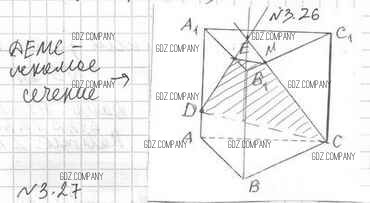 N3.26
A₁
C₁
E
M
B₁
DEMC -
искомое
сечение
D
A
C
B
N3.27
GDZ.COMPANY
GDZ.COMPANY
GDZ.COMPANY
GDZ.COMPANY
GDZ.COMPANY
GDZ.COMPANY
GDZ.COMPANY
GDZ.COMPANY
GDZ.COMPANY
GDZ.COMPANY
GDZ.COMPANY
GDZ.COMPANY